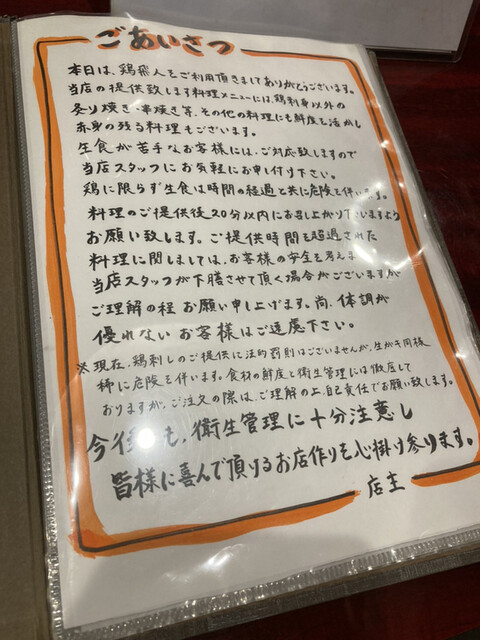 ごあいさつ
本日は、鶏飛人をご利用頂きましてありがとうございます。
当店の提供致します料理メニューには、鶏刺身以外の
炙り焼き・串焼き等、その他の料理にも鮮度を活かし
赤身の残る料理もございます。
生食が苦手なお客様には、ご対応致しますので
当店スタッフにお気軽にお申し付け下さい。
鶏に限らず生食は時間の経過と共に危険を伴います。
料理のご提供後20分以内にお召し上がり下さいますよう
お願い致します。ご提供時間を超過された
料理に関しましては、お客様の安全を考え
当店スタッフが下膳させて頂く場合がございますが
ご理解の程お願い申し上げます。尚、体調が
優れないお客様はご遠慮下さい。
※現在、鶏刺しのご提供に法的罰則はございませんが、生がき同様
稀に危険を伴います。食材の鮮度と衛生管理には徹底して
おりますが、ご注文の際は、ご理解の上、自己責任でお願い致します。
今後も、衛生管理に十分注意し
皆様に喜んで頂けるお店作りを心掛け参ります。
店主